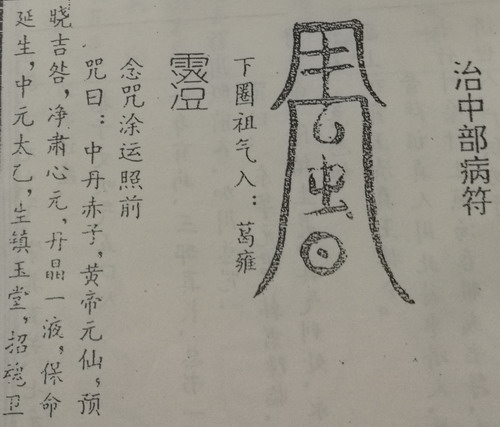 治中部病符
下圈祖气入：葛雍
念咒涂运照前
咒曰：中丹赤子，黄帝元仙，预
晓吉咎，净肃心元，丹晶一液，保命
延生，中元太乙，生镇玉堂，招魂卫